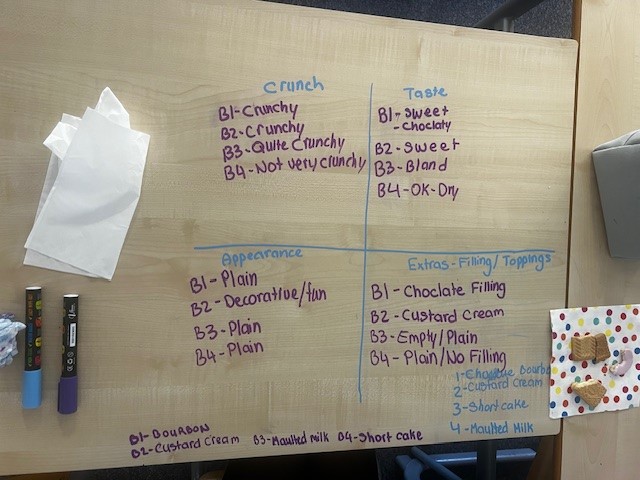 Crunch
B1-Crunchy
B2-Crunchy
B3-Quite Crunchy
B4-Not very crunchy
Taste
B1-Sweet
-Choclaty
B2-Sweet
B3-Bland
B4-OK-Dry
Appearance
B1-Plain
B2-Decorative/fun
B3-Plain
B4-Plain
Extras-Filling/Toppings
B1-Choclate Filling
B2-Custard Cream
B3-Empty/Plain
B4-Plain/No Filling
1- Bourbo
2-Custard Cream
3-Shortcake
4-Maulted Milk
B1-Bourbon
B2-Custard Cream B3-Maulted milk B4-Short cake